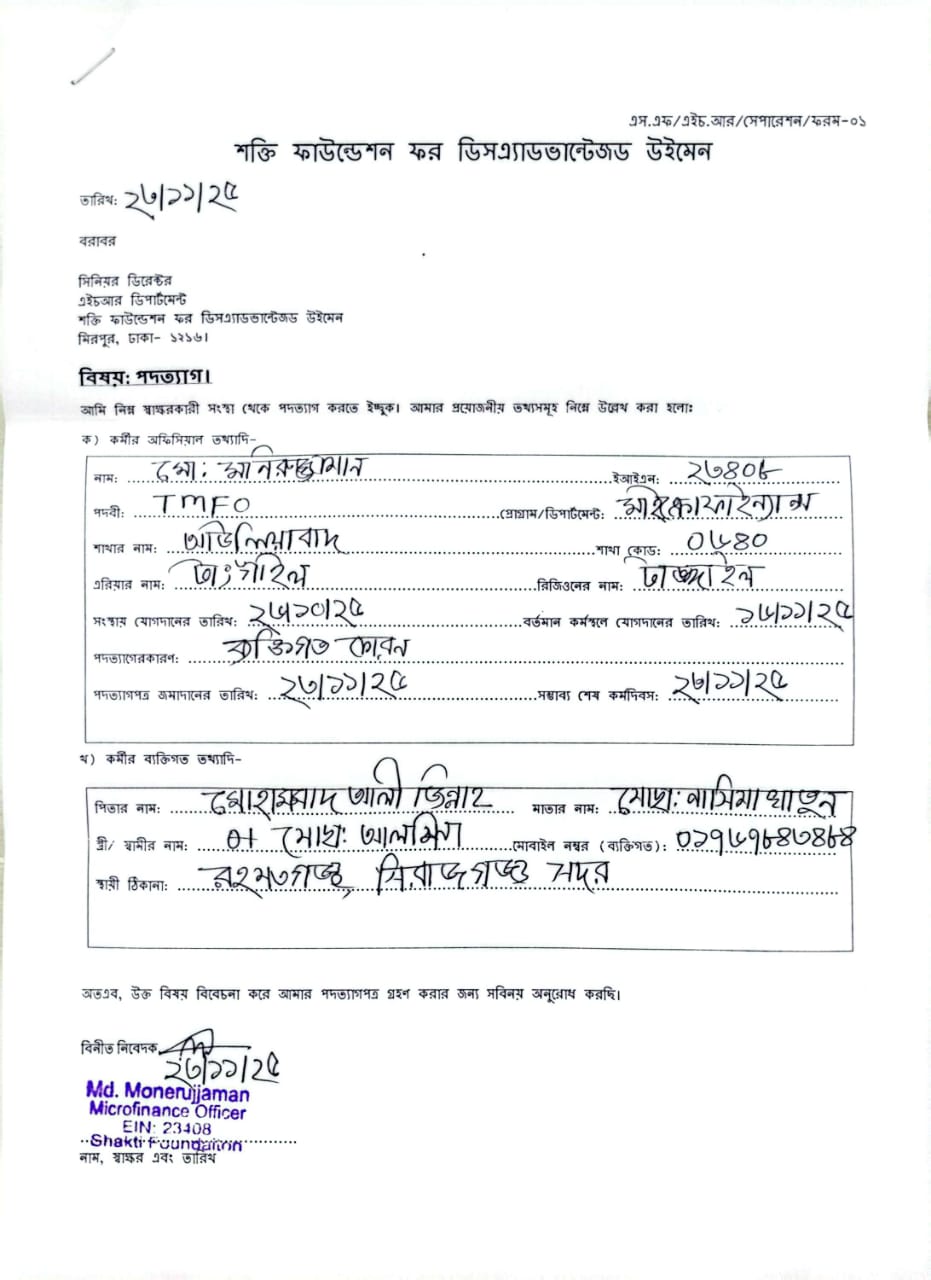 এস.এফ/এইচ.আর/সেপারেশন/ফরম-০১
শক্তি ফাউন্ডেশন ফর ডিসএ্যাডভান্টেজড উইমেন
তারিখ: ২৩/১১/২৫
বরাবর
সিনিয়র ডিরেক্টর
এইচআর ডিপার্টমেন্ট
শক্তি ফাউন্ডেশন ফর ডিসএ্যাডভান্টেজড উইমেন
মিরপুর, ঢাকা- ১২১৬।
বিষয়: পদত্যাগ।
আমি নিম্ন স্বাক্ষরকারী সংস্থা থেকে পদত্যাগ করতে ইচ্ছুক। আমার প্রয়োজনীয় তথ্যসমূহ নিম্নে উল্লেখ করা হলোঃ
ক) কর্মীর অফিসিয়াল তথ্যাদি-
নাম: মো: মনিরুজ্জামান ইআইএন: ২৩৪০৮
পদবী: TMFO প্রোগ্রাম/ডিপার্টমেন্ট: মাইক্রোফাইন্যান্স
শাখার নাম: শাখা কোড: ০৬৪০
এরিয়ার নাম: টাংগাইল রিজিওনের নাম: টাঙ্গাইল
সংস্থায় যোগদানের তারিখ: ২৬/১০/২৫ বর্তমান কর্মস্থলে যোগদানের তারিখ: ১৬/১১/২৫
পদত্যাগেরকারণ: ব্যক্তিগত কারন
পদত্যাগপত্র জমাদানের তারিখ: ২৩/১১/২৫ সম্ভাব্য শেষ কর্মদিবস: ২৩/১১/২৫
খ) কর্মীর ব্যক্তিগত তথ্যাদি-
পিতার নাম: মোহাম্মাদ আলী জিন্নাহ মাতার নাম: মোছা: নাসিমা খাতুন
স্ত্রী/ স্বামীর নাম: মোছা: মোবাইল নম্বর (ব্যক্তিগত):
স্থায়ী ঠিকানা: রহমতগঞ্জ, সিরাজগঞ্জ সদর
অতএব, উক্ত বিষয় বিবেচনা করে আমার পদত্যাগপত্র গ্রহণ করার জন্য সবিনয় অনুরোধ করছি।
বিনীত নিবেদক
২৩/১১/২৫
Md. Monerujjaman
Microfinance Officer
EIN: 23408
Shakti Foundation
নাম, স্বাক্ষর এবং তারিখ